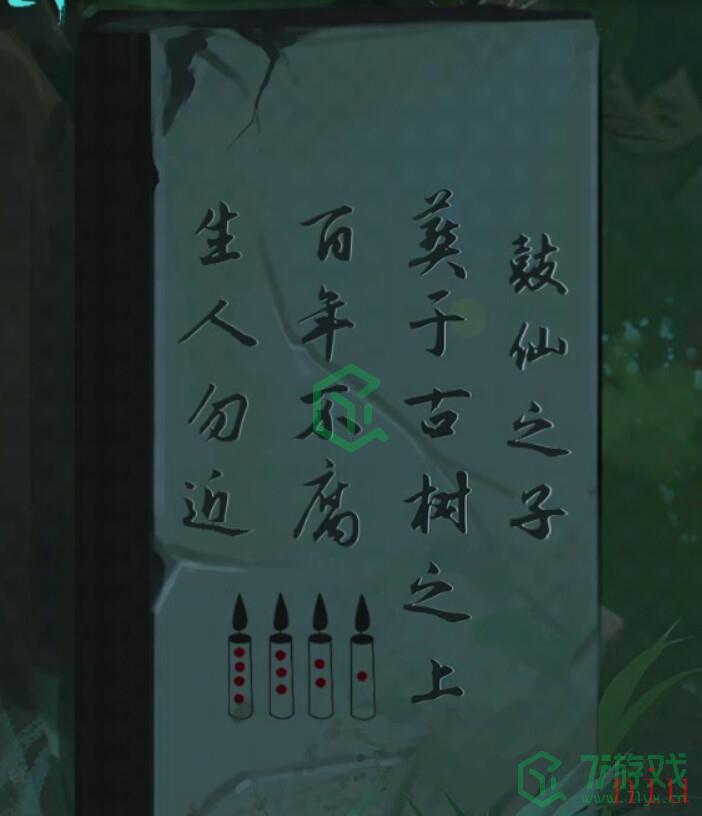 鼓仙之子
葬于古树之上
百年不腐
生人勿近
71游戏
www.71yx.cn